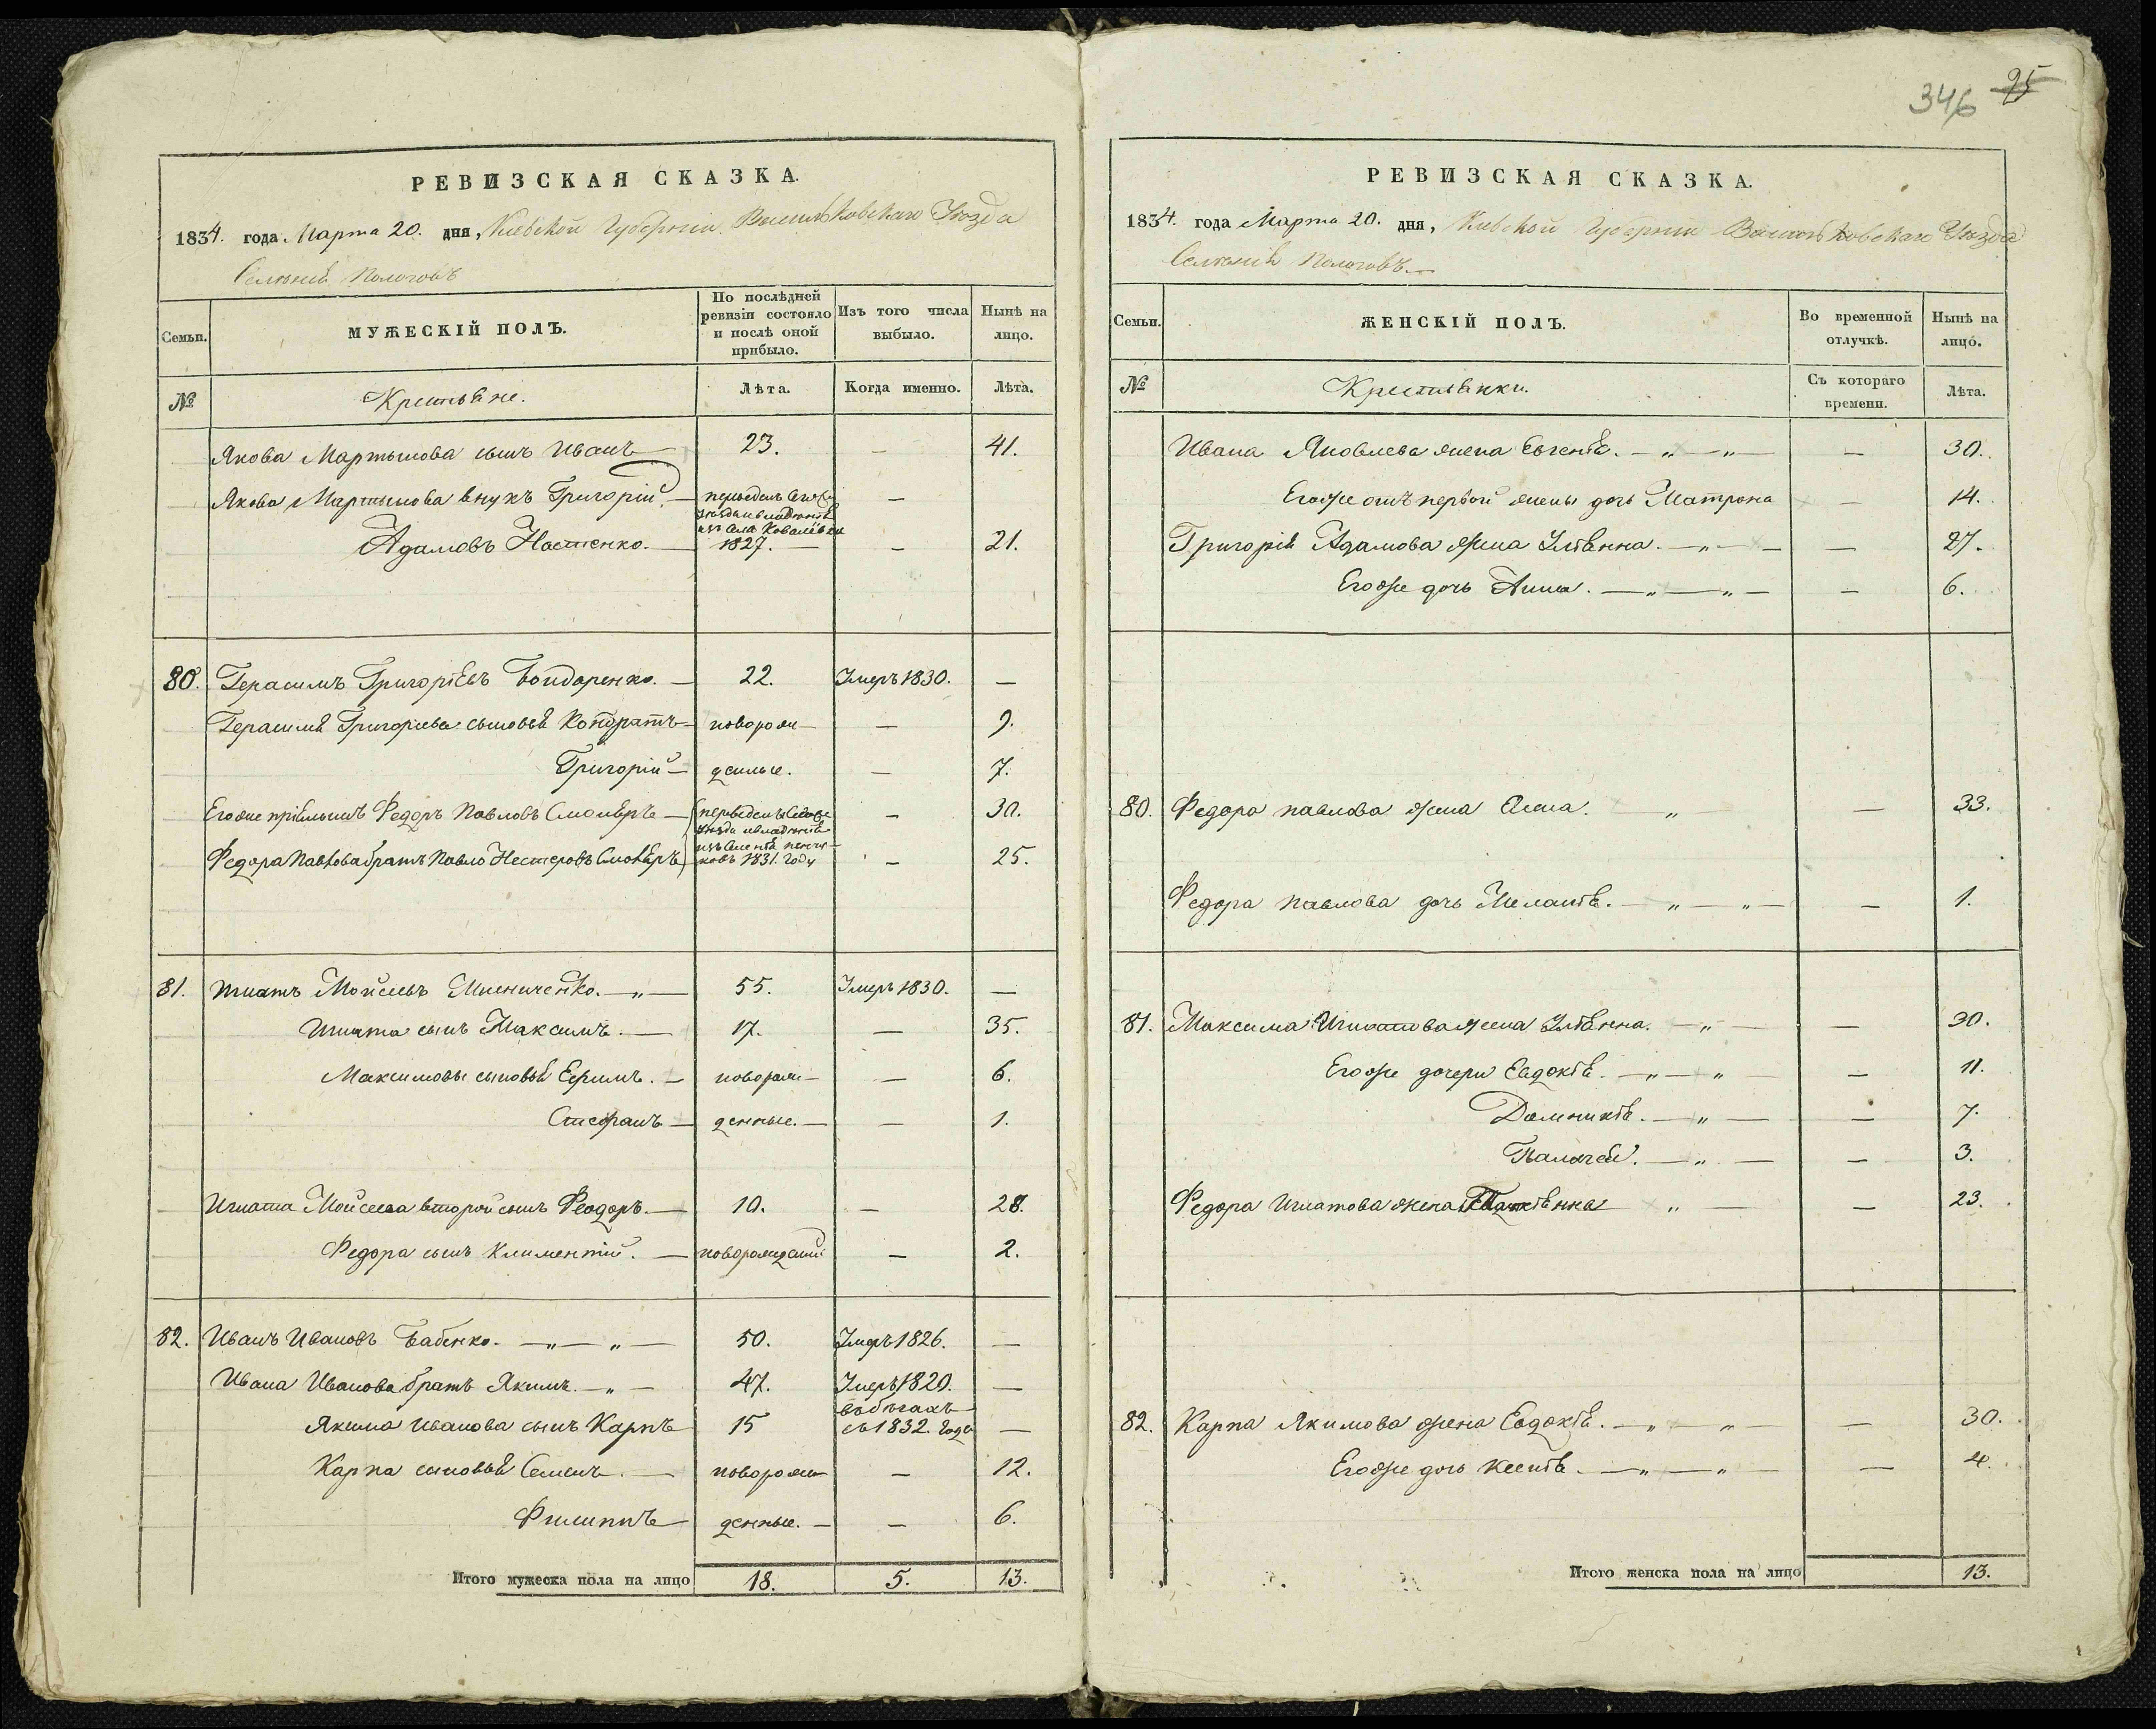 346 95
РЕВИЗСКАЯ СКАЗКА.
1834. года Марта 20. дня, Кіевской Губерніи Васильковскаго Уѣзда
Селенія Пологовъ
Семьи.
МУЖЕСКІЙ ПОЛЪ.
По послѣдней ревизіи состояло и послѣ оной прибыло.
Изъ того числа выбыло.
Нынѣ на лицо.
№
Крестьяне.
Лѣта.
Когда именно.
Лѣта.
Якова Мартынова сынъ Иванъ — 23. — 41.
Якова Мартынова внукъ Григорій — переведенъ —
изъ села Ковалевки
Адамовъ Настенко. — 1827. — — 21.
80. Герасимъ Григоріевъ Бондаренко. — 22. Умеръ 1830. —
Герасима Григорьева сыновья Кондратъ — новорож — — 9.
Григорій — денные. — 7.
Егоже пріймышъ Федоръ Павловъ Смоляръ — переведены — 30.
Федора Павлова братъ Павло Нестеровъ Смоляръ 1831. году — 25.
81. Игнатъ Мойсеевъ Мисниченко. — „ — 55. Умеръ 1830. —
Игната сынъ Максимъ. — 17. — 35.
Максимовы сыновья Ефимъ. — новорож — — 6.
Стефанъ — денные. — — 1.
Игната Мойсеева второй сынъ Феодоръ. — 10. — 28.
Федора сынъ Климентій. — новорожденный — 2.
82. Иванъ Ивановъ Бабенко. — „ — „ — 50. Умеръ 1826. —
Ивана Иванова братъ Якимъ. — „ — 47. Умеръ 1820. —
въ бѣгахъ
Якима Иванова сынъ Карпъ 15 съ 1832. года —
Карпа сыновья Семенъ. — новорож — 12.
Филиппъ — денные. — — 6.
Итого мужеска пола на лицо 18. 5. 13.
РЕВИЗСКАЯ СКАЗКА.
1834. года Марта 20. дня, Кіевской Губерніи Васильковскаго Уѣзда
Селенія Пологовъ —
Семьи.
ЖЕНСКІЙ ПОЛЪ.
Во временной отлучкѣ.
Нынѣ на лицо.
№
Крестьянки.
Съ котораго времени.
Лѣта.
Ивана Яковлева жена Евгенія. — „ — „ — — 30.
Егоже отъ первой жены дочь Матрона — 14.
Григорія Адамова жена Ульянна. — „ — — — 27.
Егоже дочь Анна. — „ — „ — — 6.
80. Федора Павлова жена Анна. „ — 33.
Федора Павлова дочь Меланія. — „ — „ — — 1.
81. Максима Игнатова жена Ульянна. — „ — — 30.
Егоже дочери Евдокія. — „ — „ — — 11.
Домникія. — „ — — 7.
Палагея. — „ — — 3.
Федора Игнатова жена Татьянна „ — — 23.
82. Карпа Якимова жена Евдокія. — „ — „ — — 30.
Егоже дочь Ксенія. — „ — „ — — 4.
Итого женска пола на лицо 13.